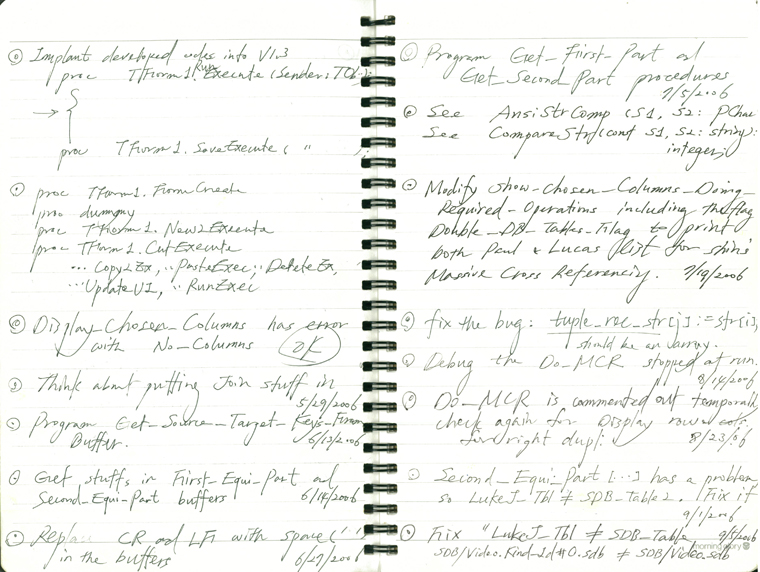 Implant developed codes into V1.3
proc TForm1.RunExecute (Sender: TOb..);
proc TForm1.SaveExecute ( " );
proc TForm1.FormCreate
proc dummy
proc TForm1.New2Execute
proc TForm1.CutExecute
... Copy2Ex, .. PasteExec, .. DeleteEx,
.. UpdateV1, .. RunExec
Display_Chosen_Columns has error
with No_Columns OK
Think about putting Join stuff in
5/29/2006
Program Get_Source_Target_Keys_From
Buffer. 6/13/2006
Get stuffs in First_Equi_Part and
Second_Equi_Part buffers 6/14/2006
Replace CR and LF with space (' ')
in the buffers 6/27/2006
Program Get_First_Part and
Get_Second_Part procedures
7/5/2006
See AnsiStrComp (S1, S2: PChar
See CompareStr(const S1, S2: string):
integer;
Modify Show_Chosen_Columns_Doing_
Required_Operations including the flag
Double_DB_Tables_Flag to print
both Paul & Lucas list for
Massive Cross Referencing. 7/19/2006
fix the bug: tuple_rec_str[j] := str[i];
should be an array.
Debug the Do_MCR stopped at run.
8/14/2006
Do_MCR is commented out temporarily
check again for Display row cols.
for right dupl. 8/23/06
Second_Equi_Part [...] has a problem,
so LukeJ_Tbl ≠ SDB_Table2. Fix it
9/1/2006
Fix "LukeJ_Tbl ≠ SDB_Table 9/5/2006
SDB/Video.Kind_Id#0.sdb ≠ SDB/Video.sdb
morning glory